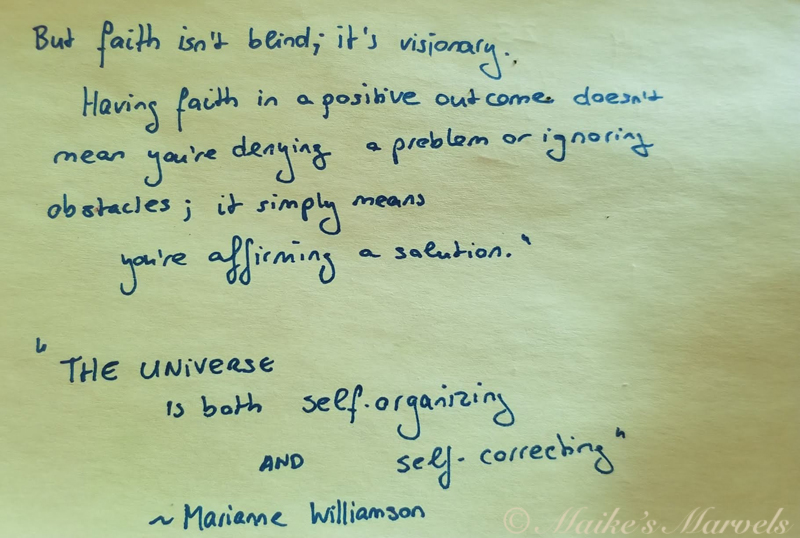 But faith isn't blind; it's visionary.
Having faith in a positive outcome doesn't
mean you're denying a problem or ignoring
obstacles; it simply means
you're affirming a solution."
"THE UNIVERSE
is both self-organizing
AND self-correcting"
~ Marianne Williamson
© Maike's Marvels